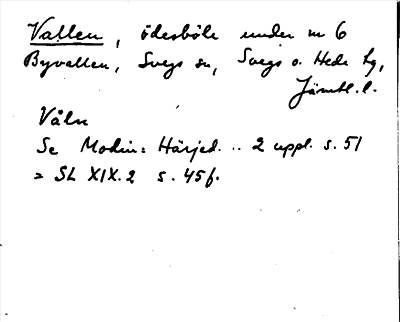 Vallen, ödesböle under nr 6
Byvallen, Svegs sn, Svegs o. Hede tg,
Jämtl. l.
Våln
Se Modin: Härjed. .. 2 uppl. s. 51
= SL XIX. 2 s. 45 f.